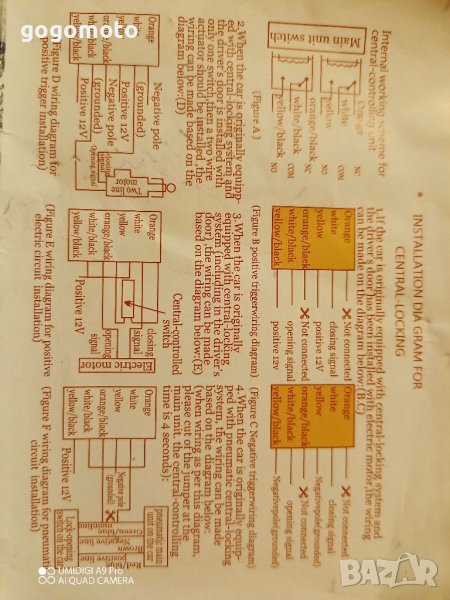 gogomoto
* INSTALLATION DIA GRAM FOR
CENTRAL-LOCKING
Internal working scheme for
central-controlling unit
Main unit switch
Orange
white
yellow
orange/black
white/black
yellow/black
NC
COM
NO
NC
COM
NO
(Figure A)
1.If the car is originally equipped with central-locking system and
the driver's door has been installed with electric motor,the wiring
can be made on the diagram below:(B.C)
Orange
white
yellow
orange/black
white/black
yellow/black
Not connected
closing signal
positive 12v
Not connected
opening signal
positive 12v
(Figure B positive triggerwiring diagram)
Orange
white
yellow
orange/black
white/black
yellow/black
Not connected
closing signal
Negativepole(grounded)
Not connected
opening signal
Negativepole(grounded)
(Figure C Negative triggerwiring diagram)
2.When the car is originally equipp-
ed with central-locking system and
the driver's door is installed with
only one switch,when a two wire
actuator should be installed ,the
wiring can be made based on the
diagram below:(D)
Orange
white
yellow
orange/black
white/black
yellow/black
Negative pole
(grounded)
Positive 12V
Negative pole
(grounded)
Positive 12V
Two line
motor
closing
signal
Opening signal
(Figure D wiring diagram for
positive trigger installation)
3.When the car is originally
equipped with central-locking
system (including in the driver's
door), the wiring can be made
based on the diagram below:(E)
Orange
yellow
white
orange/black
white/black
yellow/black
Central-controlled
switch
closing
signal
opening
signal
Positive 12V
Electric motor
(Figure E wiring diagram for positive
electric circuit installation)
4.When the car is originally equip-
ped with pneumatic central-locking
system, the wiring can be made
based on the diagram below:
(when wiring as per this diagram,
please cut off the jumper at the
main unit, the central-controlling
time is 4 seconds):
Orange
yellow
white
orange/black
white/black
yellow/black
Negative pole
(grounded)
Positive 12V
pneumatic main
unit on the car
Red/blue
positive line
Brown
Negative line
Green/blue
(Figure F wiring diagram for pneumatic
circuit installation)
UMIDIGI A9 Pro
AI QUAD CAMERA
BAZAR.BG